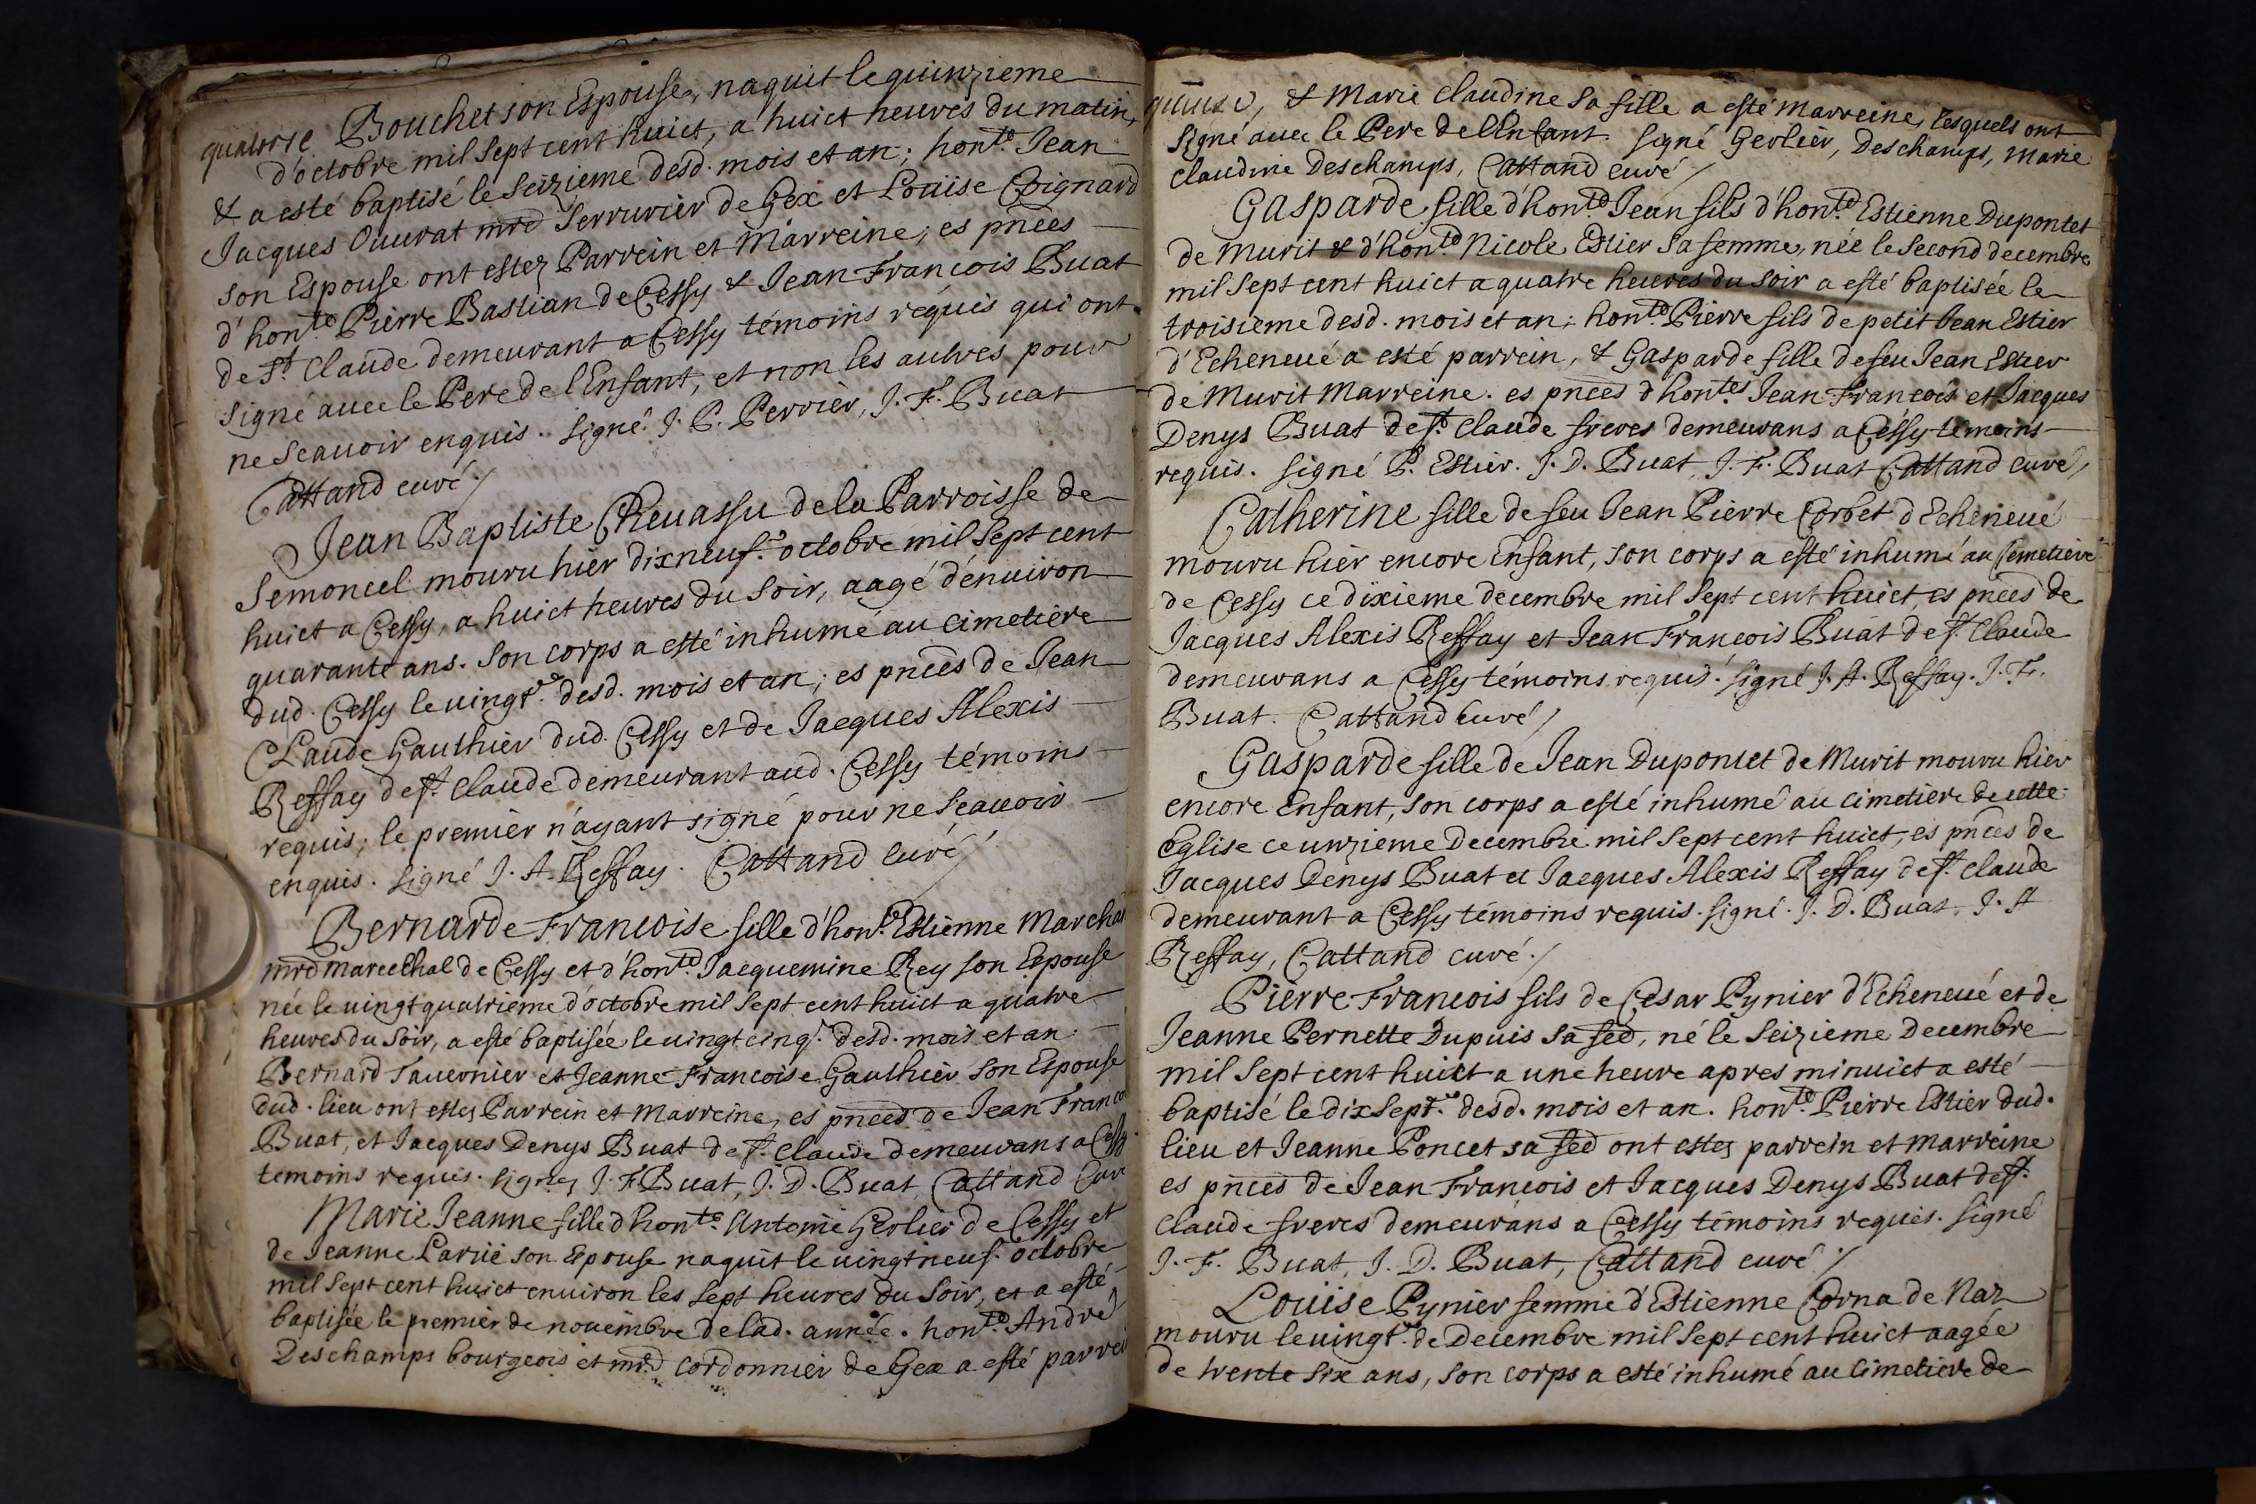 quatorze Bouchet son Espouse, naquit le quinzieme
d'octobre mil sept cent huict, a huict heures du matin,
& a esté baptisé le seizieme desd. mois et an; hon.te Jean
Jacques Ouurat mrd Serrurier de Gex et Loüise Coignard
son Espouse ont estez Parrein et Marreine; es pnces
d'hon.te Pierre Bastian de Cessy & Jean Francois Buat
de St. Claude demeurant a Cessy témoins requis qui ont
signé auec le Pere de l'Enfant, et non les autres pour
ne scauoir enquis. signé. J. P. Perrier, J. F. Buat
Cattand curé /
Jean Baptiste Cheuassu de la Parroisse de
Semoncel mouru hier dixneuf.e octobre mil sept cent
huict a Cessy, a huict heures du soir, aagé d'enuiron
quarante ans. son corps a esté inhumé au cimetière
dud. Cessy le vingt.e desd. mois et an; es pnces de Jean
Claude Gauthier dud. Cessy et de Jacques Alexis
Reffay de St. Claude demeurant aud. Cessy témoins
requis; le premier n'ayant signé pour ne scauoir
enquis. signé J. A. Reffay. Cattand curé /
Bernarde Francoise fille d'hon.te Estienne Marcha
mrd marechal de Cessy et d'hon.te Jacquemine Rey son Espouse
née le uingt quatrieme d'octobre mil sept cent huict a quatre
heures du soir, a esté baptisée le uingt cinq.e desd. mois et an.
Bernard Tauernier et Jeanne Francoise Gauthier son Espouse
dud. lieu ont estez Parrein et marreine, es pnces de Jean Franco
Buat, et Jacques Denys Buat de St. Claude demeurans a Cessy
temoins requis. signez J. F. Buat, J. D. Buat, Cattand Cur
Marie Jeanne fille d'hon.te Antoine Gerlier de Cessy et
de Jeanne Larüe son Espouse naquit le uingtneuf. octobre
mil sept cent huict enuiron les sept heures du soir, et a esté
baptisée le premier de nouembre de lad. année. hon.te André
Deschamps bourgeois et mrd cordonnier de Gex a esté parrei
& Marie Claudine sa fille a esté Marreine, lesquels ont
signé auec le Pere de l'Enfant. signé Gerlier, Deschamps, Marie
Claudine Deschamps, Cattand curé /
Gasparde fille d'hon.te Jean fils d'hon.te Estienne Dupontet
de Murit & d'hon.te Nicole Estier sa femme, née le second decembre
mil sept cent huict a quatre heures du soir a esté baptisée le
troisieme desd. mois et an; hon.te Pierre fils de petit Jean Estier
d'Echeneué a esté parrein, & Gasparde fille de feu Jean Estier
de Murit Marreine. es pnces d'hon.tes Jean Francois et Jacques
Denys Buat de St. Claude freres demeurans a Cessy témoins
requis. signé P. Estier. J. D. Buat, J. F. Buat Cattand curé /
Catherine fille de feu Jean Pierre Corbet d'Echeneué
mouru hier encore Enfant, son corps a esté inhumé au semetiere
de Cessy ce dixieme decembre mil sept cent huict, es pnces de
Jacques Alexis Reffay et Jean Francois Buat de St. Claude
demeurans a Cessy témoins requis. signé J. A. Reffay. J. F.
Buat. Cattand curé /
Gasparde fille de Jean Dupontet de Murit mouru hier
encore Enfant, son corps a esté inhumé au cimetiere de cette
Eglise ce unzieme decembre mil sept cent huict, es pnces de
Jacques Denys Buat et Jacques Alexis Reffay de St. Claude
demeurant a Cessy témoins requis. signé. J. D. Buat, J. A
Reffay, Cattand curé. /
Pierre Francois fils de Cesar Pynier d'Echeneué et de
Jeanne Pernette Dupuis sa feê, né le seizieme decembre
mil sept cent huict a une heure apres minuict a esté
baptisé le dixsept.e desd. mois et an. hon.te Pierre Estier dud.
lieu et Jeanne Poncet sa feê ont estez parrein et marreine
es pnces de Jean Francois et Jacques Denys Buat de St.
Claude freres demeurans a Cessy témoins requis. signé
J. F. Buat, J. D. Buat, Cattand curé /
Loüise Pynier femme d'Estienne Corna de Naz
mouru le uingt.e de Decembre mil sept cent huict aagée
de trente six ans, son corps a esté inhumé au cimetiere de